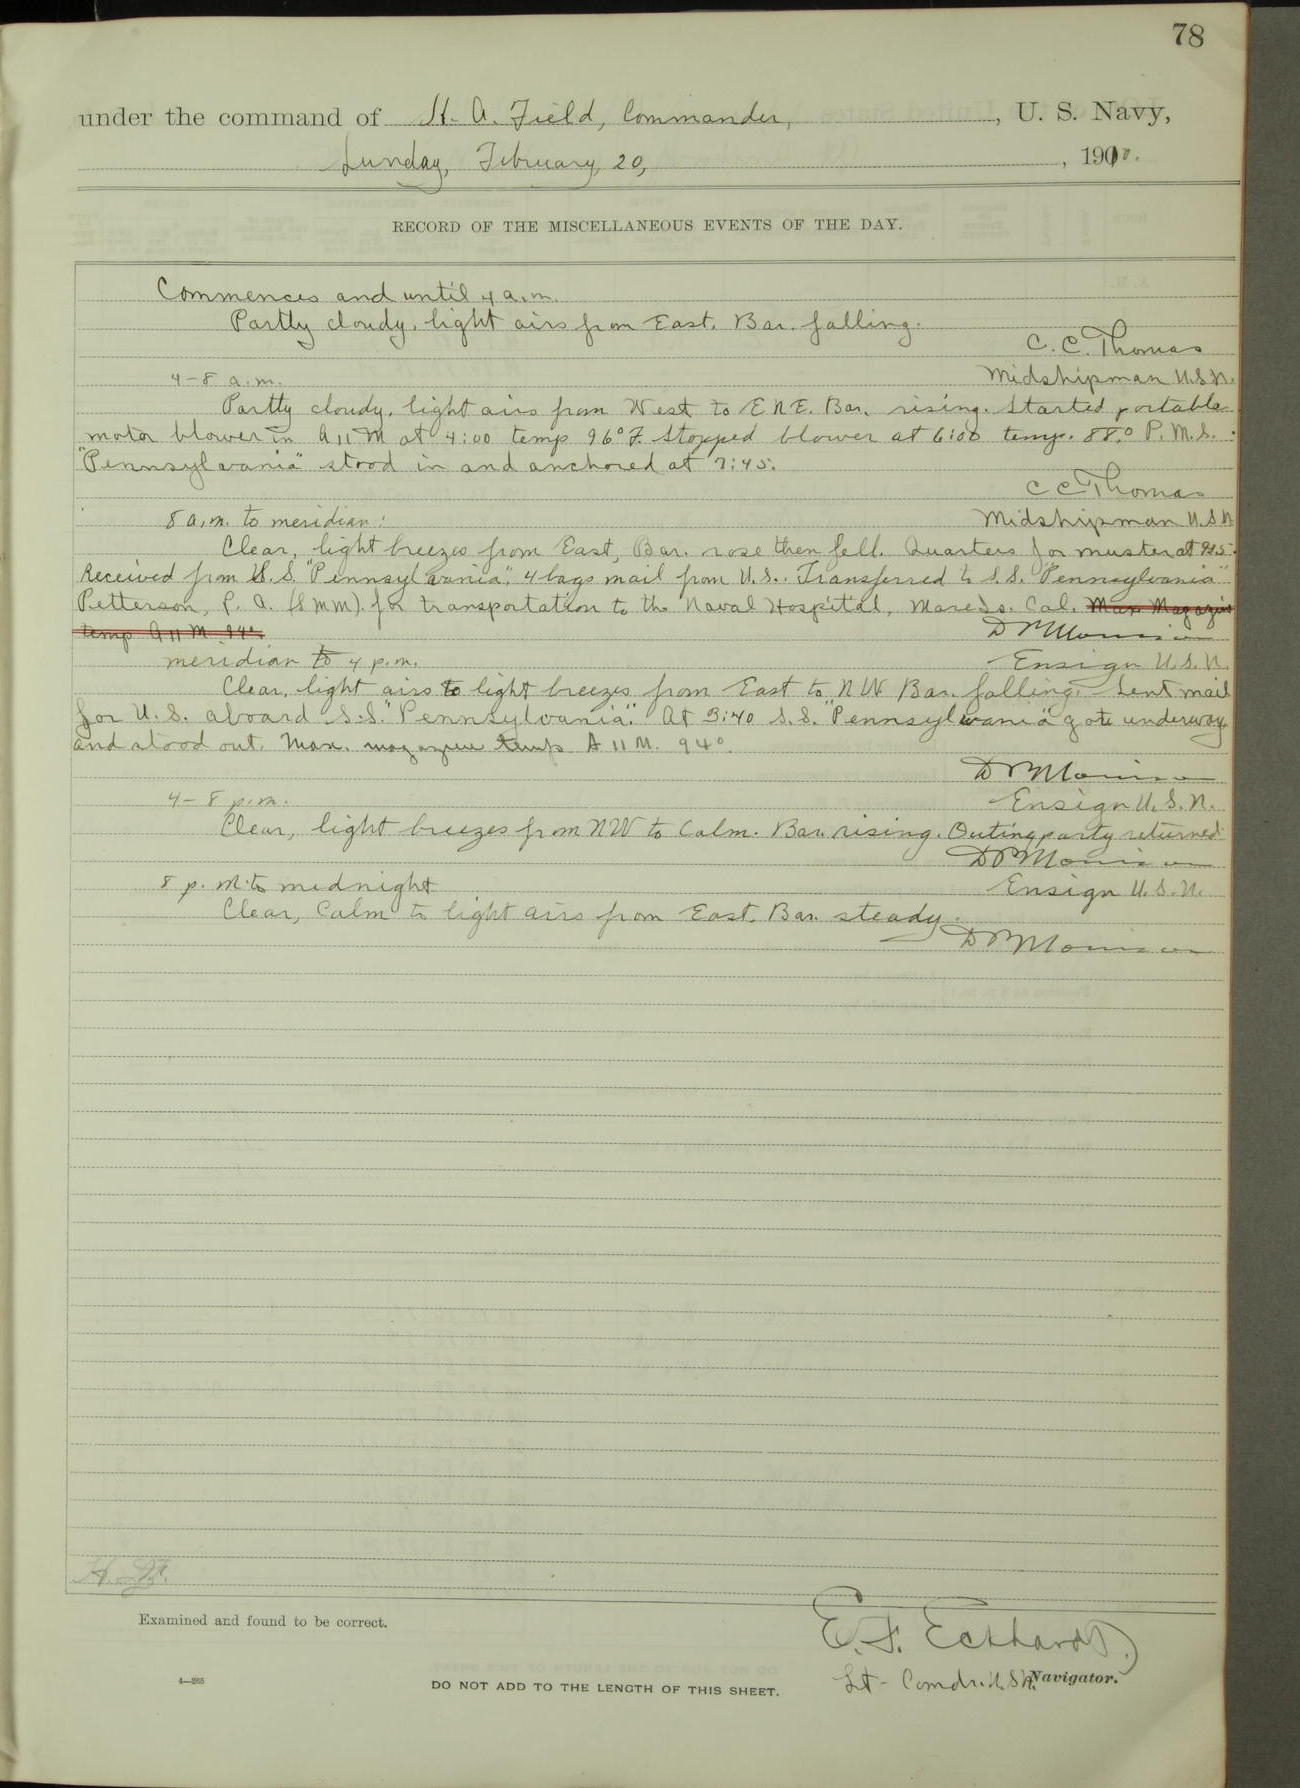 78
under the command of H. A. Field, Commander, , U. S. Navy,
Sunday, February 20, , 1910.
RECORD OF THE MISCELLANEOUS EVENTS OF THE DAY.
Commences and until 4 a.m.
Partly cloudy, light airs from East. Bar. falling.
C. C. Thomas
4-8 a.m.
Midshipman U.S.N.
Partly cloudy, light airs from West to ENE. Bar. rising. Started portable
motor blower in A 11 M at 4:00 temp 96° F. Stopped blower at 6:00 temp. 88.° P. M. S.
"Pennsylvania" stood in and anchored at 7:45.
C C Thomas
8 a.m. to meridian:
Midshipman U.S.N
Clear, light breezes from East, Bar. rose then fell. Quarters for muster at 9:15.
Received from U.S. "Pennsylvania", 4 bags mail from U.S.. Transferred to S.S. "Pennsylvania"
Petterson, P. A. (SMM). for transportation to the Naval Hospital, Mare Is. Cal. Max Magazine
temp A 11 M. 94°.
D M Morrison
meridian to 4 p.m.
Ensign U.S.N.
Clear, light airs to light breezes from East to NW Bar. falling. Sent mail
for U.S. aboard S.S. "Pennsylvania". At 3:40 S.S. "Pennsylvania" got underway
and stood out. Max. magazine temp A 11 M. 94°.
Morrison
4-8 p.m.
Ensign U.S.N.
Clear, light breezes from NW to Calm. Bar. rising. Outing party returned.
Morrison
8 p. m. to midnight
Ensign U.S.N.
Clear, Calm to light airs from East. Bar. steady.
Morrison
H. F.
Examined and found to be correct.
E. F. Eckhardt.
Lt-Comdr. U.S.N. Navigator.
4—265
DO NOT ADD TO THE LENGTH OF THIS SHEET.